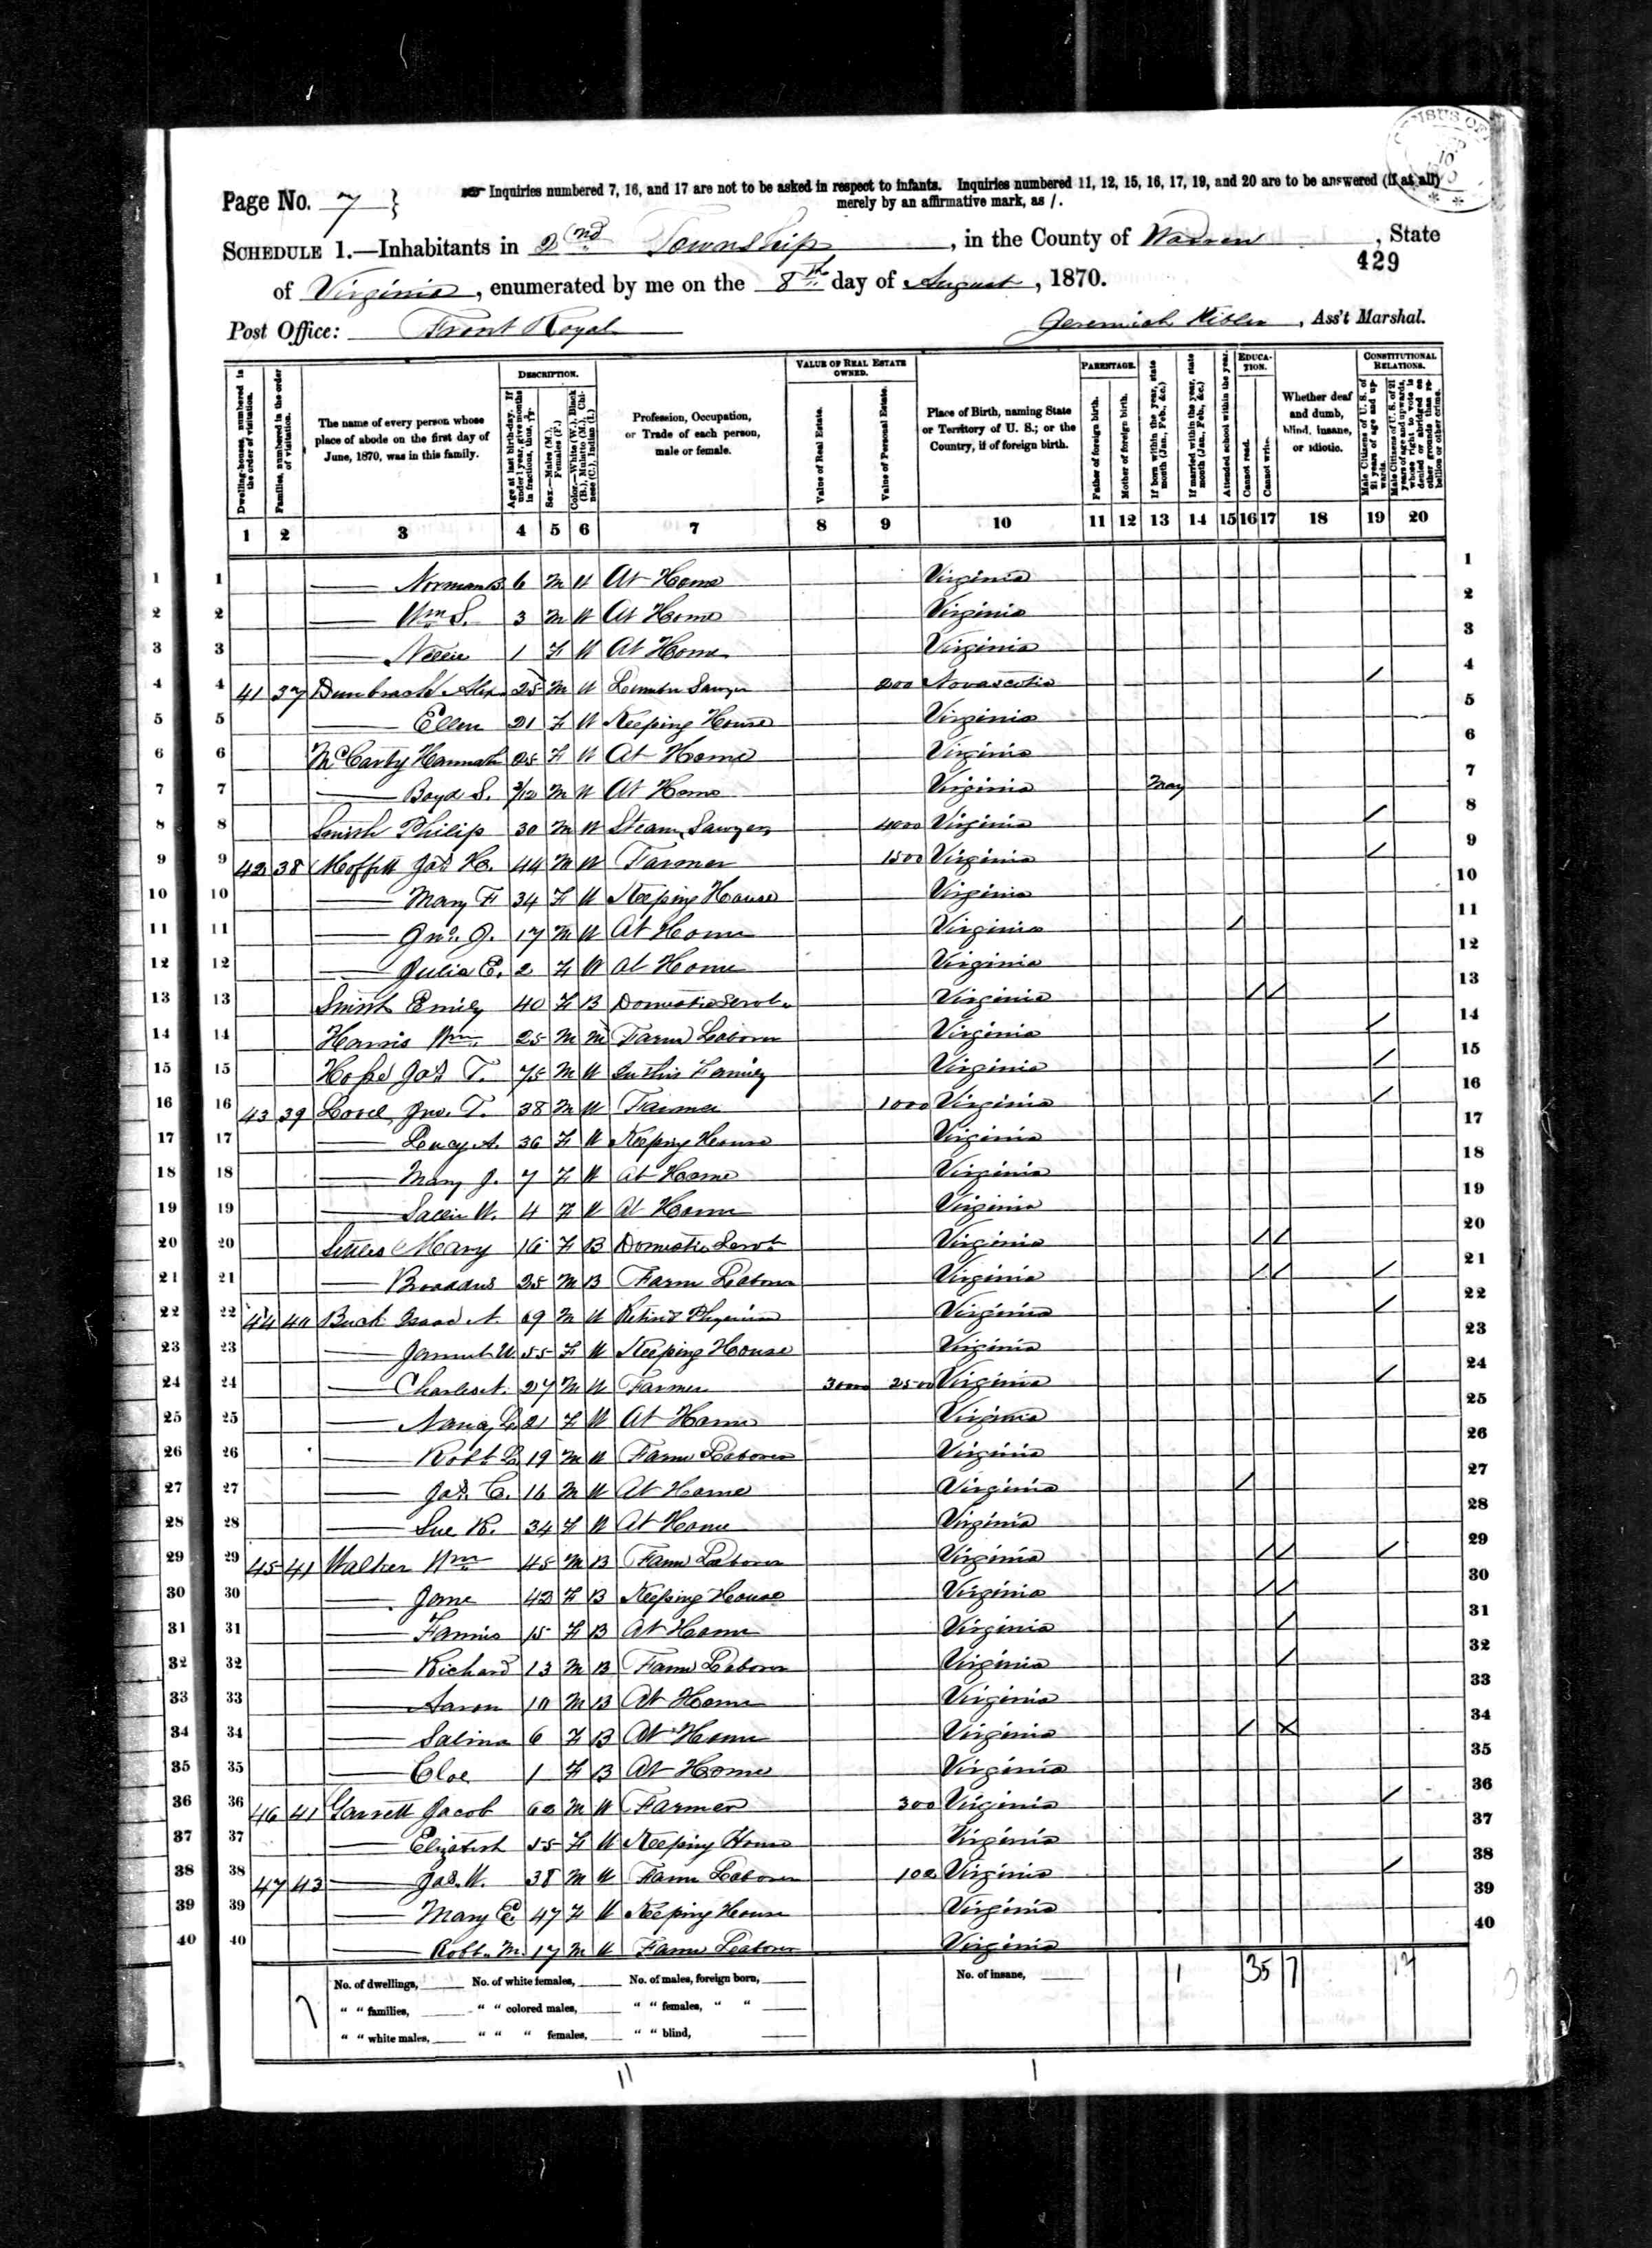 Page No. 7 }
Inquiries numbered 7, 16, and 17 are not to be asked in respect to infants. Inquiries numbered 11, 12, 15, 16, 17, 19, and 20 are to be answered (if at all)
merely by an affirmative mark, as /.
SCHEDULE 1.—Inhabitants in 2nd Township, in the County of Warren, State
429
of Virginia, enumerated by me on the 8th day of August, 1870.
Post Office: Front Royal
Jeremiah, Ass't Marshal.
Dwelling-houses, numbered in the order of visitation.
Families, numbered in the order of visitation.
The name of every person whose place of abode on the first day of June, 1870, was in this family.
DESCRIPTION.
Age at last birth-day. If under 1 year, give months in fractions, thus,
Sex.—Males (M.), Females (F.)
Color.—White (W.), Black (B.), Mulatto (M.), Chinese (C.), Indian (I.)
Profession, Occupation, or Trade of each person, male or female.
VALUE OF REAL ESTATE OWNED.
Value of Real Estate.
Value of Personal Estate.
Place of Birth, naming State or Territory of U. S.; or the Country, if of foreign birth.
PARENTAGE.
Father of foreign birth.
Mother of foreign birth.
If born within the year, state month (Jan., Feb., &c.)
If married within the year, state month (Jan., Feb., &c.)
Attended school within the year.
EDUCATION.
Cannot read.
Cannot write.
Whether deaf and dumb, blind, insane, or idiotic.
CONSTITUTIONAL RELATIONS.
Male Citizens of U. S. of 21 years of age and upwards.
Male Citizens of U. S. of 21 years of age and upwards, whose right to vote is denied or abridged on other grounds than rebellion or other crime.
1 2 3 4 5 6 7 8 9 10 11 12 13 14 15 16 17 18 19 20
1 Norman B. 6 M W At Home Virginia
2 Wm S. 3 M W At Home Virginia
3 Nellie 1 F W At Home Virginia
4 41 37 Alex 25 M W Lumber Sawyer 200 Novascotia /
5 Ellen 21 F W Keeping House Virginia
6 McCarty Hannah 25 F W At Home Virginia
7 Boyd S. /12 M W At Home Virginia May
8 Smith Philip 30 M W Steam Sawyer 4000 Virginia /
9 42 38 Moffett Jas H. 44 M W Farmer 1500 Virginia /
10 Mary F 34 F W Keeping House Virginia
11 Jno. J. 17 M W At Home Virginia /
12 Julia E. 2 F W At Home Virginia
13 Smith Emily 40 F B Domestic Servt Virginia / /
14 Harris Wm 25 M M Farm Laborer Virginia /
15 Jas T. 75 M W In this Family Virginia /
16 43 39 Jno. T. 38 M W Farmer 1000 Virginia /
17 Lucy A. 36 F W Keeping House Virginia
18 Mary J. 7 F W At Home Virginia
19 Sallie W. 4 F W At Home Virginia
20 Settles Mary 16 F B Domestic Servt Virginia / /
21 Broaddus 25 M B Farm Laborer Virginia / / /
22 44 40 Buck Isaac N. 69 M W Retired Physician Virginia /
23 W. 55 F W Keeping House Virginia
24 Charles A. 27 M W Farmer 3000 2500 Virginia /
25 21 F W At Home Virginia
26 Robt L 19 M W Farm Laborer Virginia
27 Jas. C. 16 M W At Home Virginia /
28 Sue R. 34 F W At Home Virginia
29 45 41 Walker Wm 45 M B Farm Laborer Virginia / / /
30 Jane 42 F B Keeping House Virginia / /
31 Fannie 15 F B At Home Virginia /
32 Richard 13 M B Farm Laborer Virginia /
33 Aaron 10 M B At Home Virginia
34 Salina 6 F B At Home Virginia / X
35 Cloe 1 F B At Home Virginia
36 46 41 Garrett Jacob 62 M W Farmer 300 Virginia /
37 Elizabeth 55 F W Keeping House Virginia
38 47 43 Jas. W. 38 M W Farm Laborer 100 Virginia /
39 Mary E. 47 F W Keeping House Virginia
40 Robt. M. 17 M W Farm Laborer Virginia
No. of dwellings, No. of white females, No. of males, foreign born, No. of insane, 1 35 7
" " families, " " colored males, " " females, " "
" " white males, " " " females, " " blind,